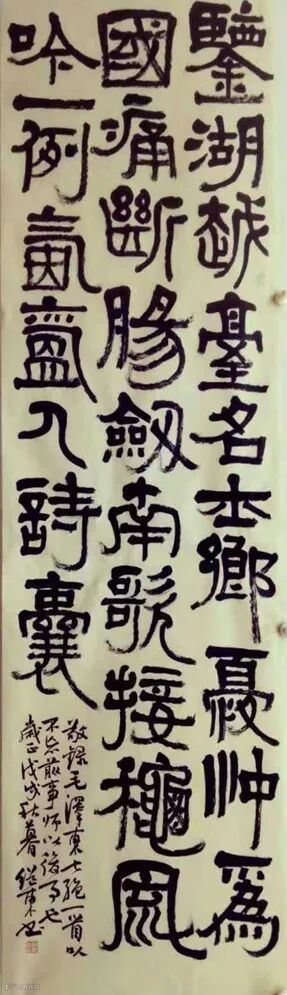 鑒湖越臺名士鄉憂忡爲
國痛斷腸劒南歌接龝風
吟一例氤氳入詩囊
敬錄毛澤東七絕一首以
不忘前事師以後事也
歲止戊戌秋暮